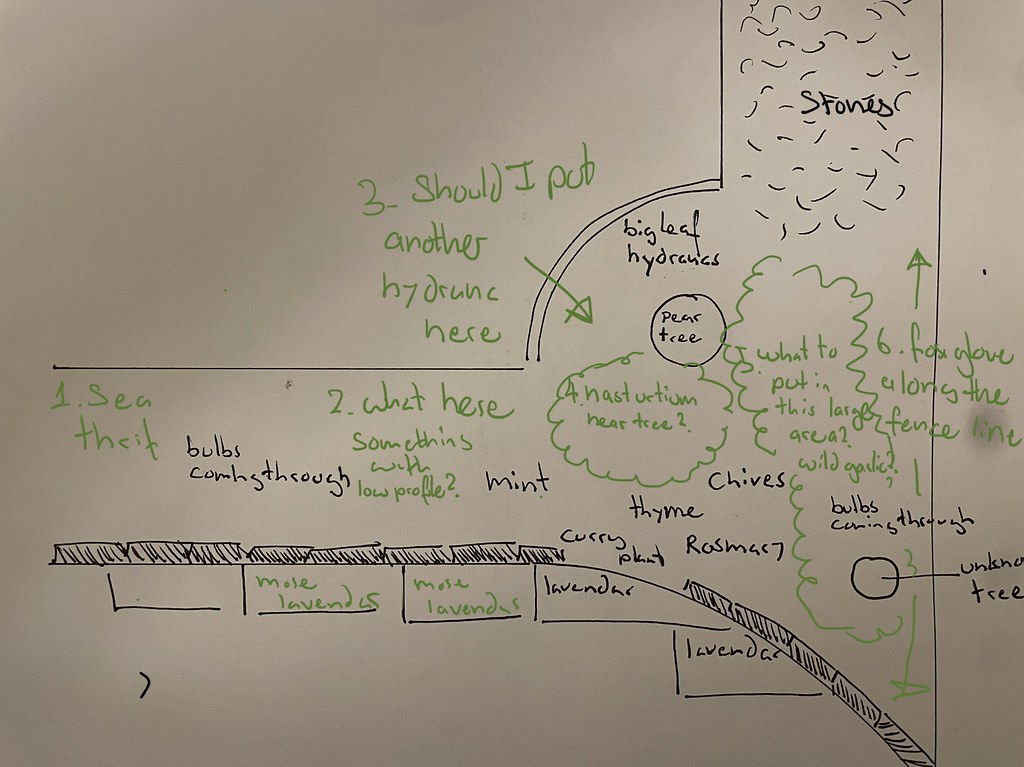 Stones
3- Should I put
another
hydranc
here
big leaf
hydrancas
pear
tree
1. Sea
thrif
2. what here
Something
with
low profile?
bulbs
coming through
mint
4. nasturtium
near tree?
what to
put in
this large
area?
wild garlic?
6. foxglove
along the
fence line
Chives
thyme
curry
plant
Rosmary
bulbs
coming through
tree
more
lavendas
more
lavendas
lavendar
lavendar